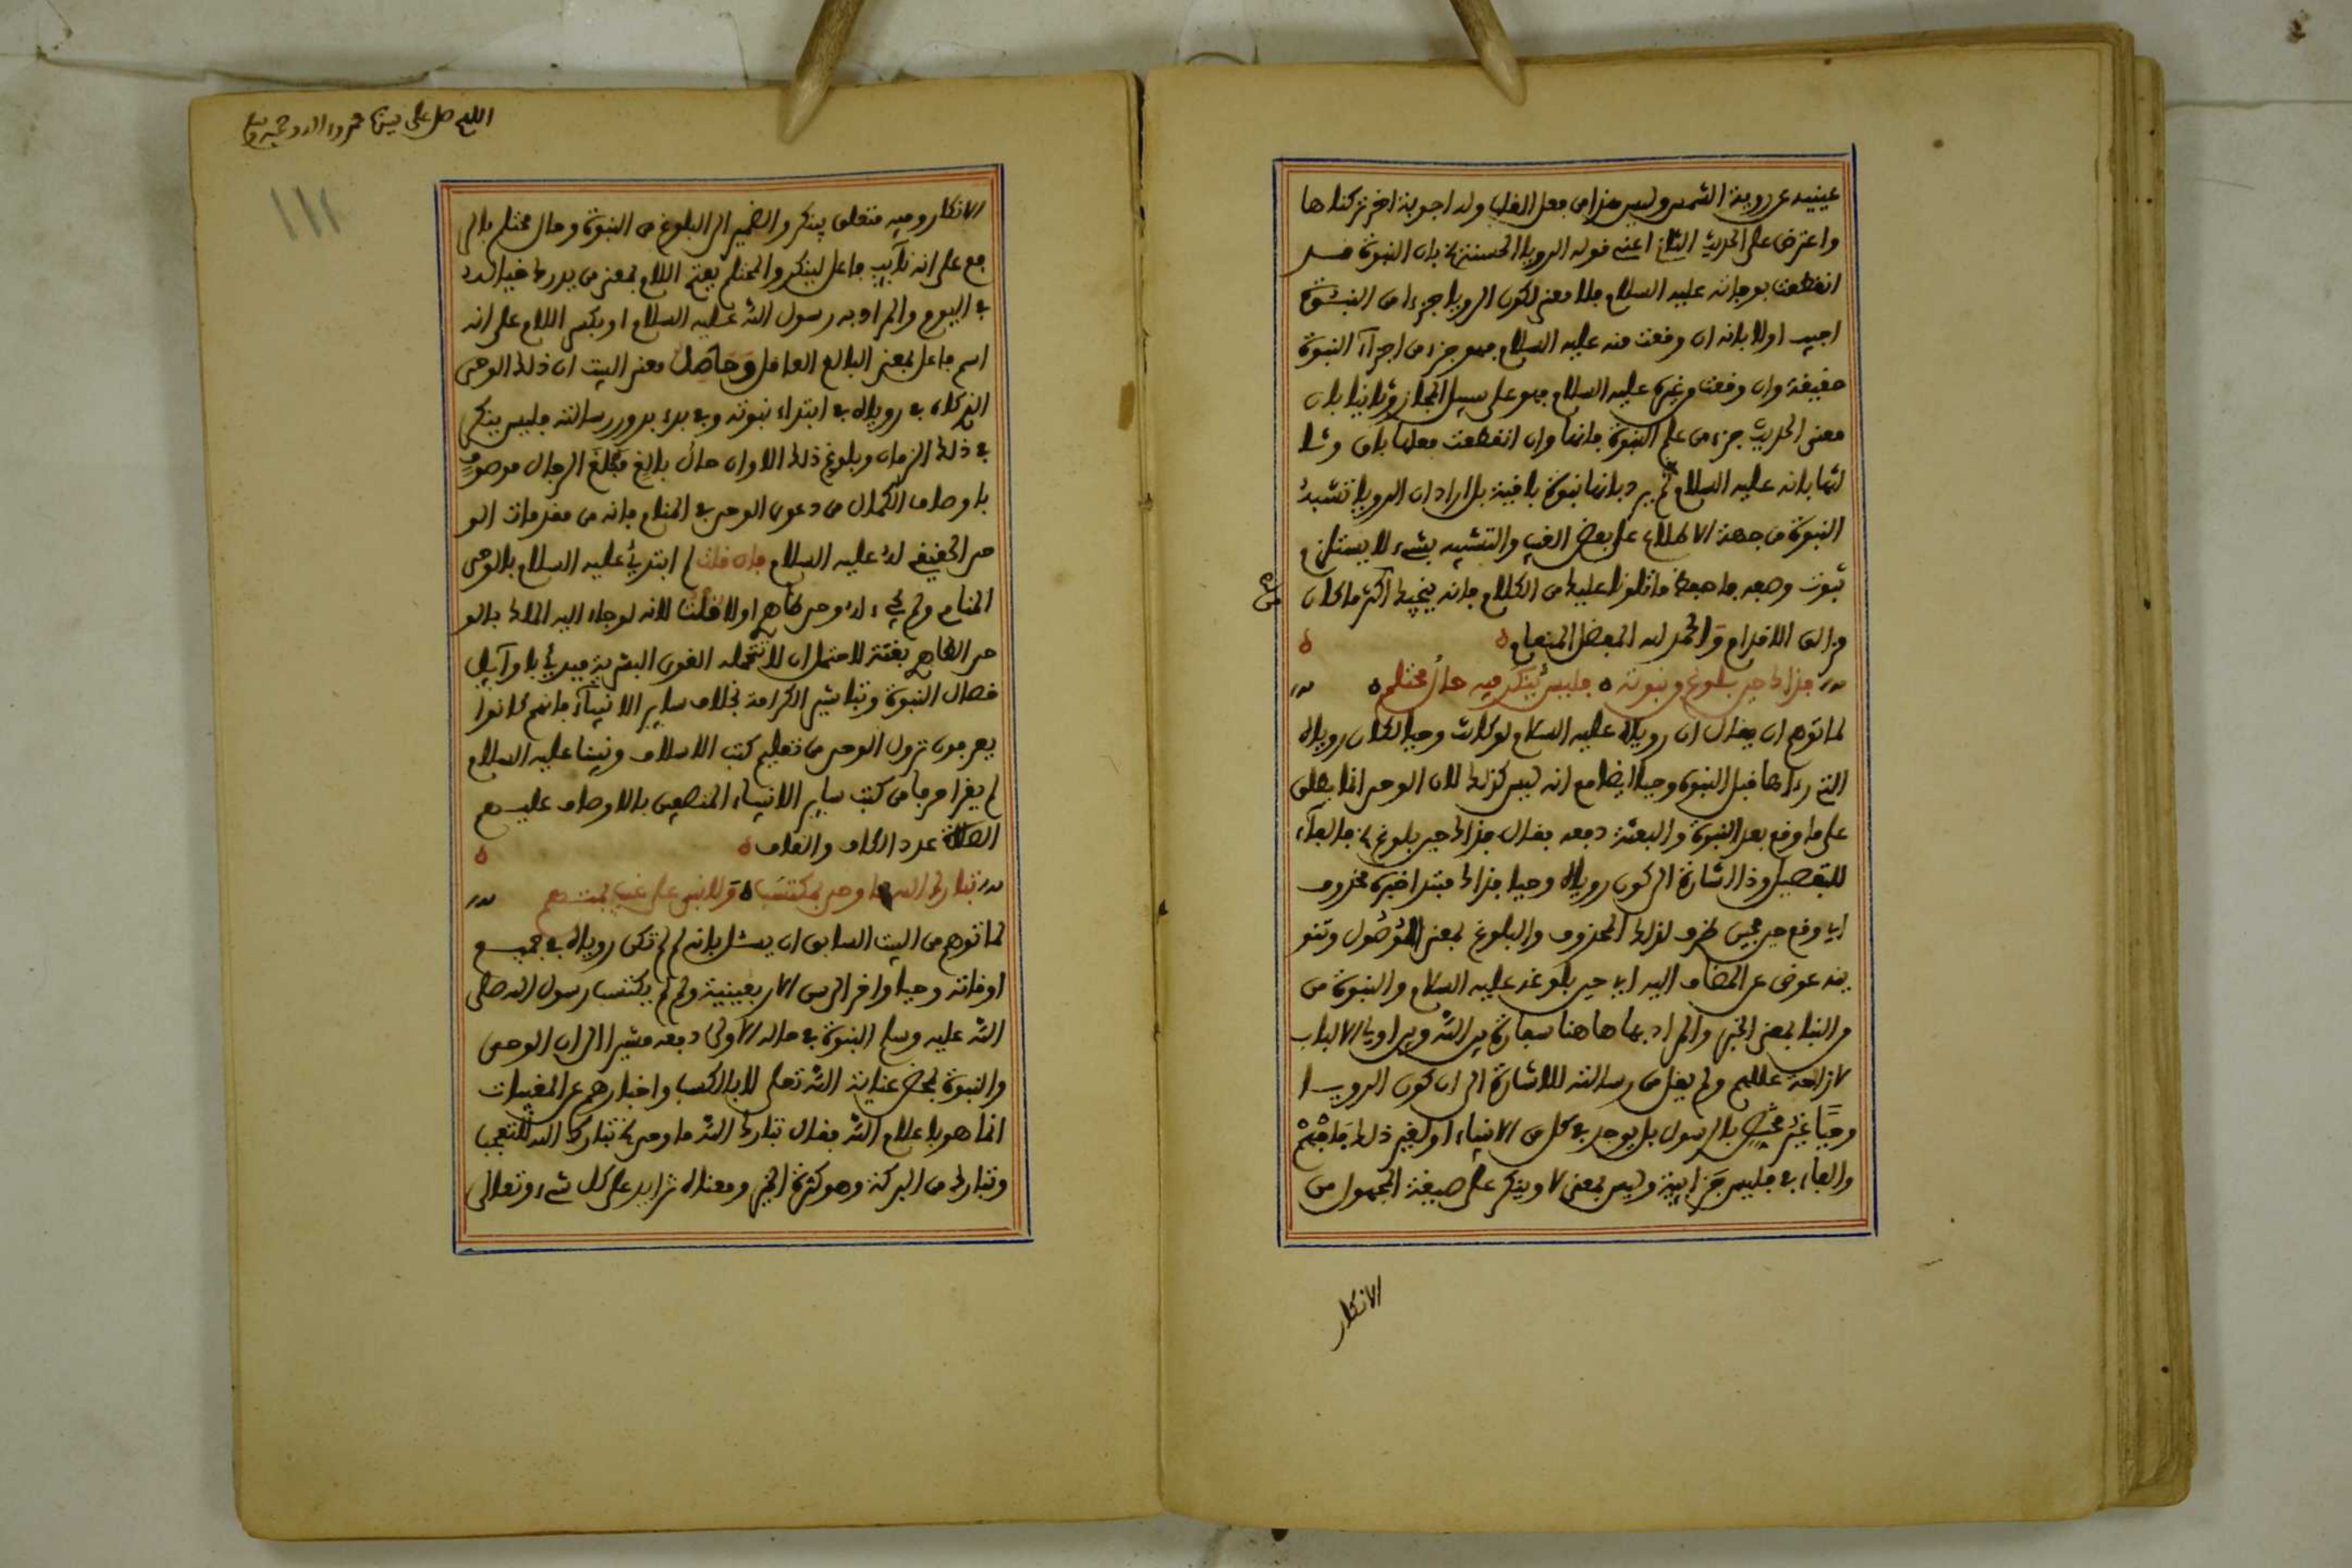 عينيه عن روية الشمس وليس هذا من فعل القلب وله اجوبة اخر تركناها
واعترض على الحديث الثاني اعني قوله الرويا الحسنة الخ بان النبوة قد
انقطعت بوفاته عليه السلام فلا معنى لكون الرويا جزءا من النبوة
اجيب اولا بانه ان وقعت منه عليه السلام فهو جزء من اجزآء النبوة
حقيقة وان وقعت من غيره عليه السلام فهو على سبيل المجاز وثانيا بان
معنى الحديث جزء من علم النبوة فانها وان انقطعت فعلمها باق وثا
لثا بانه عليه السلام لم يرد بانها نبوة باقية بل اراد ان الرويا تشبه
النبوة من جهة الاطلاع على بعض الغيب والتشبيه بشيء لا يستلزم
ثبوت وصفه فاحفظ ما تلونا عليك من الكلام فانه ينجيك اكثر ما كان
من
مزالق الاقدام والحمد لله المفضل المنعام
فذاك حين بلوغ من نبوته فليس ينكر فيه حال محتلم
لما توهم ان يقال ان روياه عليه السلام لو كانت وحيا لكان روياه
التي رءاها قبل النبوة وحيا ايضا مع انه ليس كذلك لان الوحي انما يطلق
على ما وقع بعد النبوة والبعثة دفعه بقال فذاك حين بلوغ الخ فالفآء
للتفصيل وذا اشارة الى كون روياه وحيا فذاك مبتدا خبره محذوف
اي وقع حين فحين ظرف لذلك المحذوف والبلوغ بمعنى الوصول وتنو
ينه عوض عن المضاف اليه اي حين بلوغه عليه السلام والنبوة من
من النبا بمعنى الخبر والمراد بها هاهنا سفارة بين الله وبين اولي الالباب
لازاحة عللهم ولم يقل من رسالته للاشارة الى ان كون الرويا
وحيا غير مختص بالرسول بل يوجد في كل من الانبياء او لغير ذلك فافهم
والفاء في فليس جزايية وليس بمعنى لا وينكر على صيغة المجهول من
الانكار
اللهم صل على سيدنا محمد واله وصحبه وسلم
١١١
الانكار وفيه متعلق بينكر والضمير الى البلوغ من النبوة وحال محتلم بالر
فع على انه نآيب فاعل لينكر والمحتلم بفتح اللام بمعنى من يدرك خياله
في النوم والمراد به رسول الله عليه السلام او بكسر اللام على انه
اسم فاعل بمعنى البالغ العاقل وحاصل معنى البيت ان ذلك الوحي
الذي كان في روياه في ابتداء نبوته وفي بدء بدور رسالته فليس ينكر
في ذلك الزمان وبلوغ ذلك الاوان حال بالغ مبلغ الرجال موصوف
باوصاف الكمال من دعوى الوحي في المنام فانه من مقدمات الو
حي الحقيقي له عليه السلام فان قلت لم ابتديء عليه السلام بالوحي
المنامي ولم يجيء له وحي ظاهر اولا قلنا لانه لو جاء اليه الملك بالو
حي الظاهر بغتة لاحتمل ان لا تتحمله القوى البشرية فبدي باوآيل
خصال النبوة وتباشير الكرامة بخلاف ساير الانبيآء فانهم كانوا
يعرفون نزول الوحي من تعليم كتب الاسلاف ونبينا عليه السلام
لم يقرا حرفا من كتب ساير الانبياء المتصفين بالاوصاف عليهم
الصلاة عدد الكاف والقاف
تبارك الله ما وحي بمكتسب ولا نبي على غيب بمتهم
لما توهم من البيت السابق ان يسئل بانه لم لم تكن روياه في جميع
اوقاته وحيا واخر الى سن الاربعينية ولم لم يكتسب رسول الله صلى
الله عليه وسلم النبوة في حاله الاولى دفعه مشيرا الى ان الوحي
والنبوة بمحض عناية الله تعلى لا بالكسب واخبارهم عن المغيبات
انما هو باعلام الله فقال تبارك الله ما وحي الخ تبارك الله للتعجب
وتبارك من البركة وهو كثرة الخير ومعناه تزايد على كل شيء وتعالى